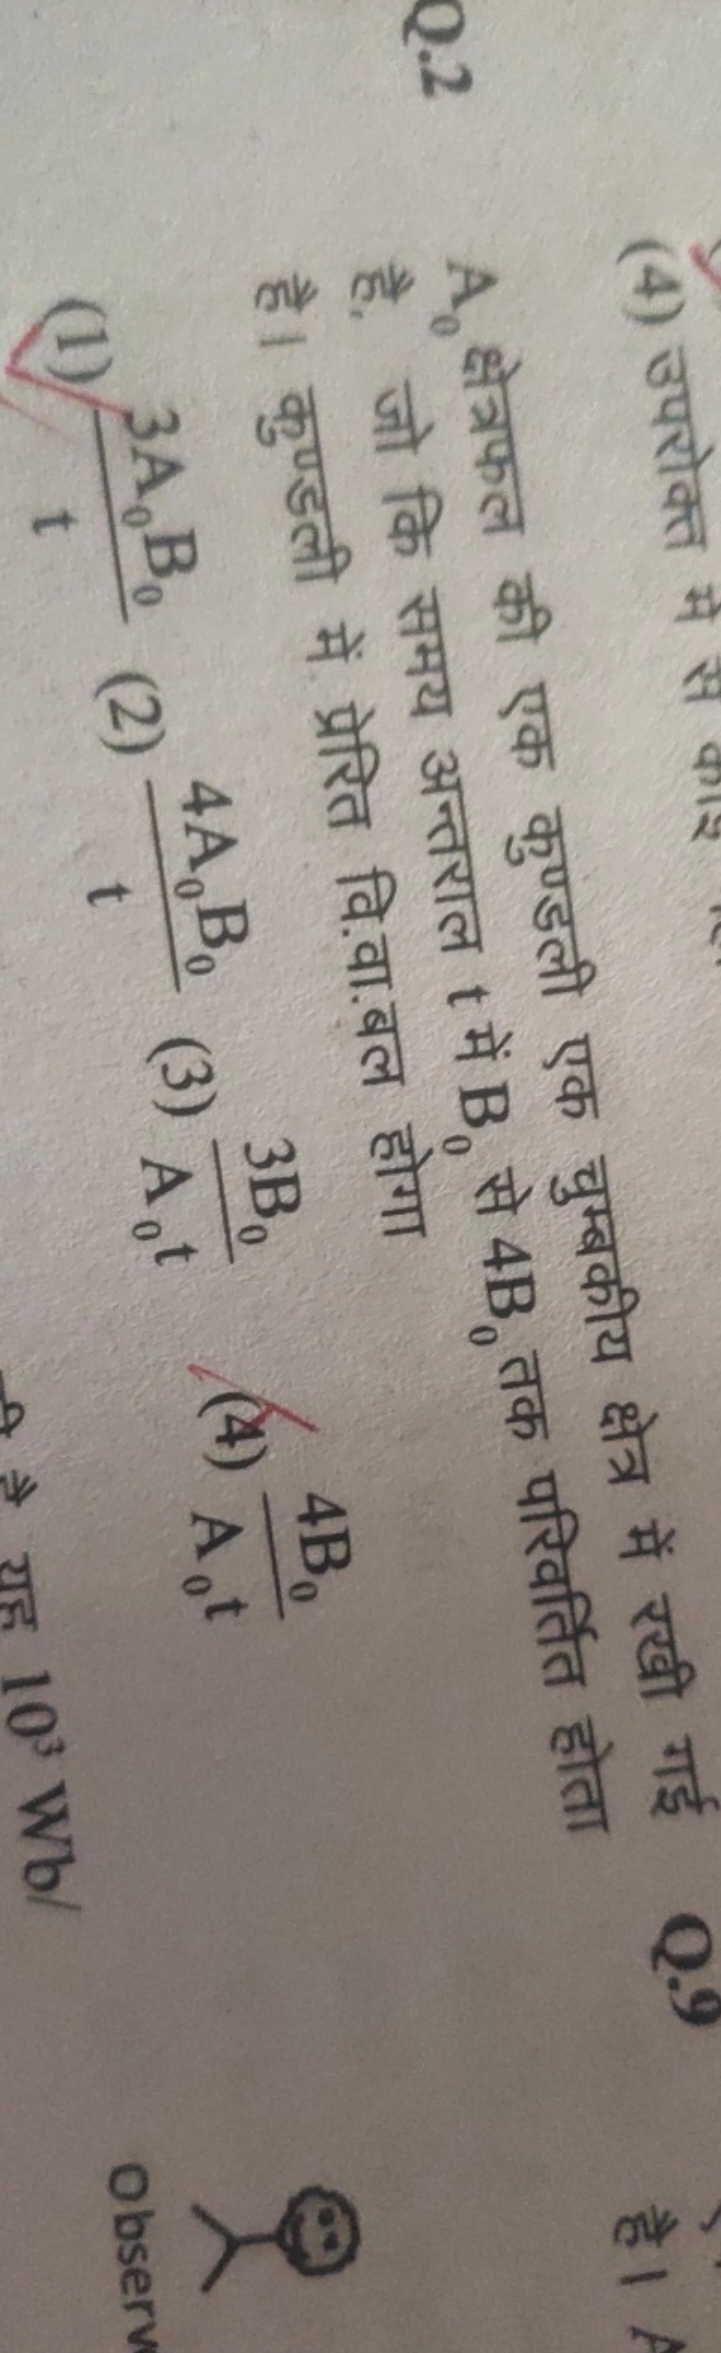 (4) उपरोक्त में से कोई
Q.2 A₀ क्षेत्रफल की एक कुण्डली एक चुम्बकीय क्षेत्र में रखी गई
है, जो कि समय अन्तराल t में B₀ से 4B₀ तक परिवर्तित होता
है। कुण्डली में प्रेरित वि.वा.बल होगा
(1) 3A₀B₀ / t (2) 4A₀B₀ / t (3) 3B₀ / A₀t (4) 4B₀ / A₀t
है यह 10³ Wb/
Q.9
है। A
Observ